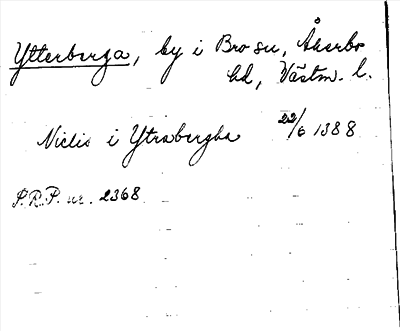 Ytterberga, by i Bro sn, Åkerbo
hd, Västm. l.
Niclis i Ytrabergha 22/6 1388
S.R.P. nr. 2368